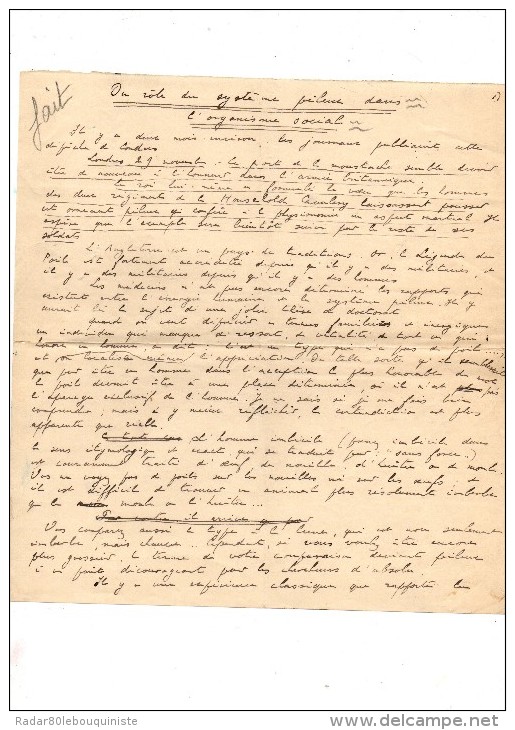 fait
Du rôle du système pileux dans
l'organisme social
Il y a deux mois environ, les journaux publiaient cette
dépêche de Londres
Londres 29 novembre. Le port de la moustache semble devoir
être de nouveau à l'honneur dans l'armée britannique.
Le roi lui-même a formulé le vœu que les hommes
des deux régiments de la Household Cavalry laissassent pousser
cet ornement pileux qui confère à la physionomie un aspect martial. Il
espère que l'exemple sera bientôt suivi par le reste de ses
soldats
L'Angleterre est un pays de traditions. Or, la légende du
Poilu est fortement accréditée depuis qu'il y a des militaires, et
il y a des militaires depuis qu'il y a des hommes
Les médecins n'ont pas encore déterminé les rapports qui
existent entre l'énergie humaine et le système pileux. Il y
aurait là le sujet d'une jolie thèse de doctorat
Quand on veut définir en termes familiers et énergiques
un individu qui manque de ressort, de vitalité de tout ce qui
un homme on dit : c'est un type qui n'a pas de poil .....
et on l'appréciation de telle sorte qu'il semblerait
que pour être un homme dans l'acception la plus honorable du mot
le poil devrait être à une place déterminée, où il n'est pas
l'apanage exclusif de l'homme. Je ne sais si je me fais bien
comprendre ; mais à y mieux réfléchir, la contradiction est plus
apparente que réelle.
L'homme imbécile (prenez imbécile dans
le sens étymologique et exact, qui se traduit par : "sans force")
est couramment traité d'œuf, de nouille, d'huître ou de moule.
Vous ne voyez pas de poils sur les nouilles ni sur les œufs. Et
il est difficile de trouver un animal plus résolument imberbe
que la moule ou l'huître...
Vous comparez aussi le type à la lune, qui est non seulement
imberbe, mais chauve.. Cependant, si vous voulez être encore
plus grossier, le terme de votre comparaison devient pileux
à un point décourageant pour les chercheurs d'absolu
Il y a une expérience classique que rapportent les
Radar80lebouquiniste
www.delcampe.net